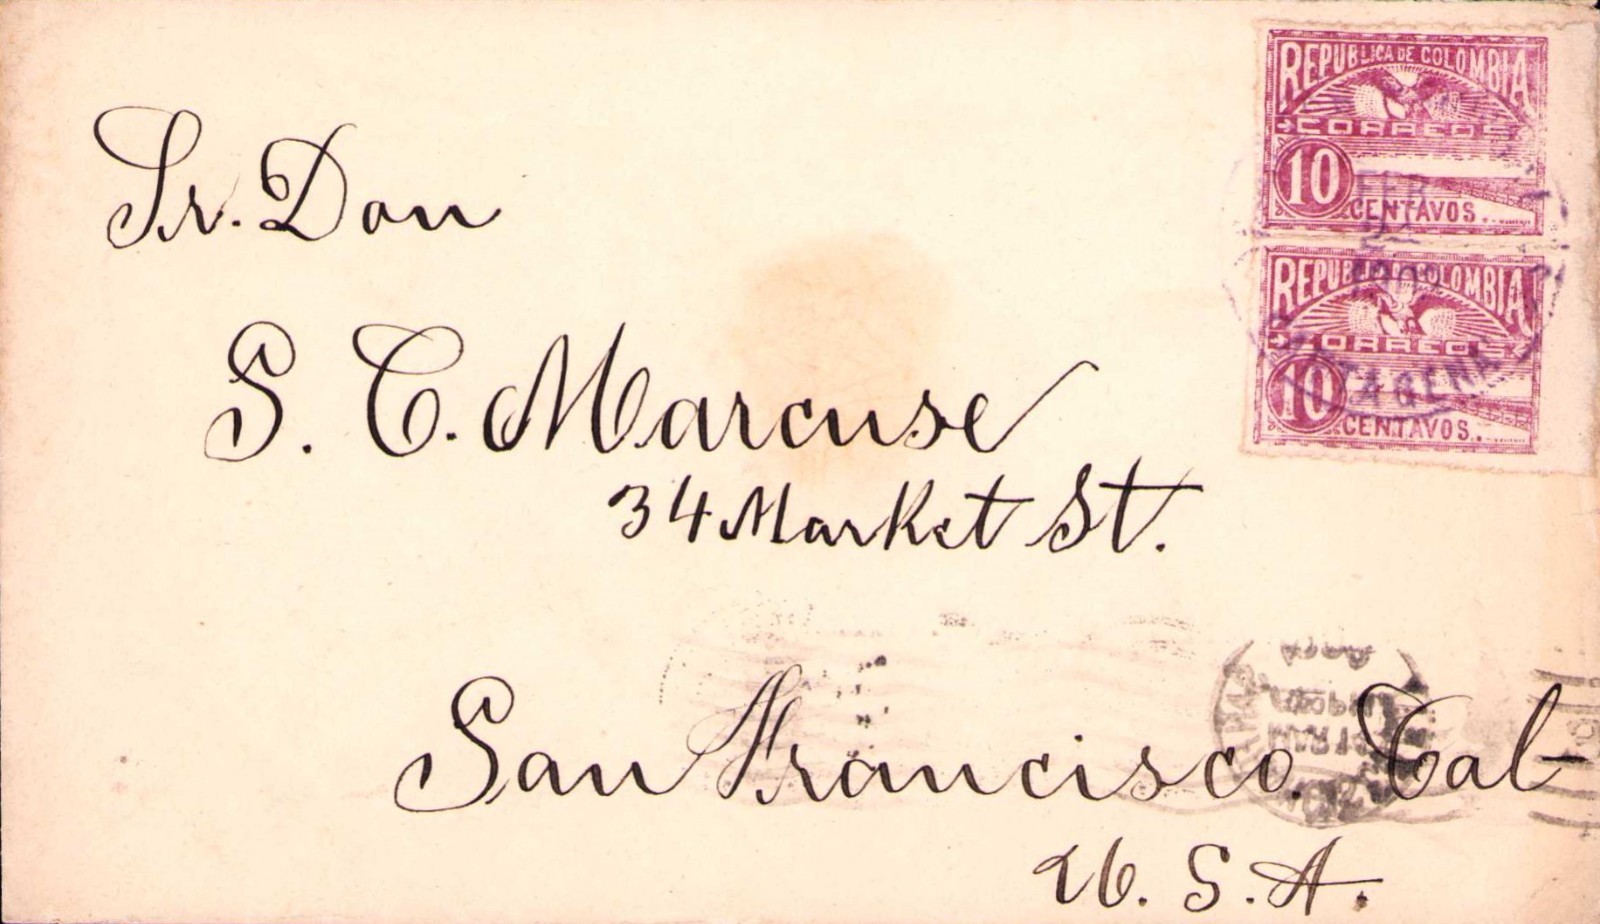 REPUBLICA DE COLOMBIA
CORREOS
10
CENTAVOS.
REPUBLICA COLOMBIA
CORREOS
10
CENTAVOS.
FEB
CARTAGENA
Sr. Don
S. C. Marcuse
34 Market St.
San Francisco. Cal-
U. S. A.